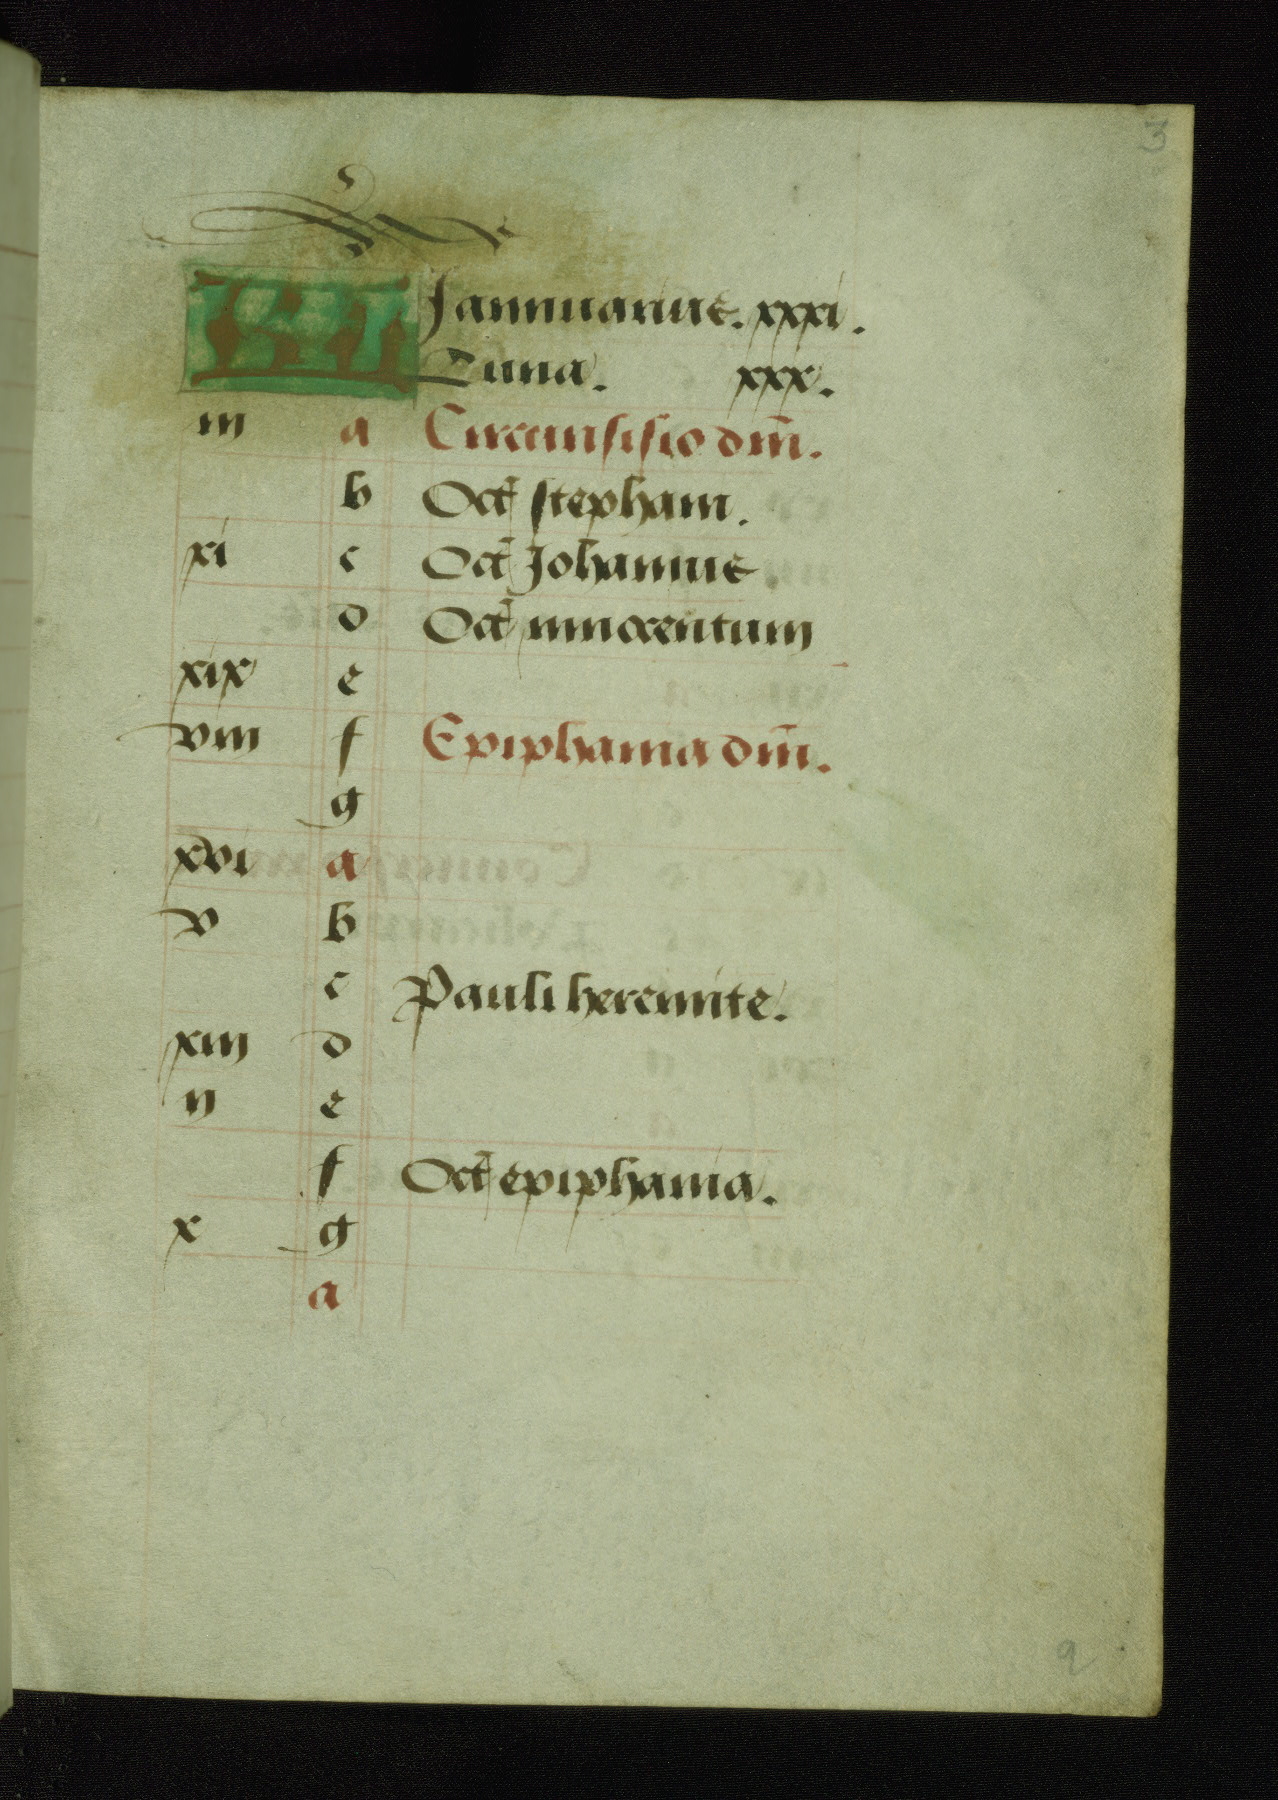 3
KL Januuarius. xxxi.
Luna. xxx.
iii a Circunsisio dm̄.
b Oct̄ stephani.
xi c Oct̄ Johannis.
d Oct̄ innocentum
xix e
viii f Epiphania dm̄.
g
xvi a
v b
c Pauli heremite.
xiii d
ii e
f Oct̄ epiphania.
x g
a